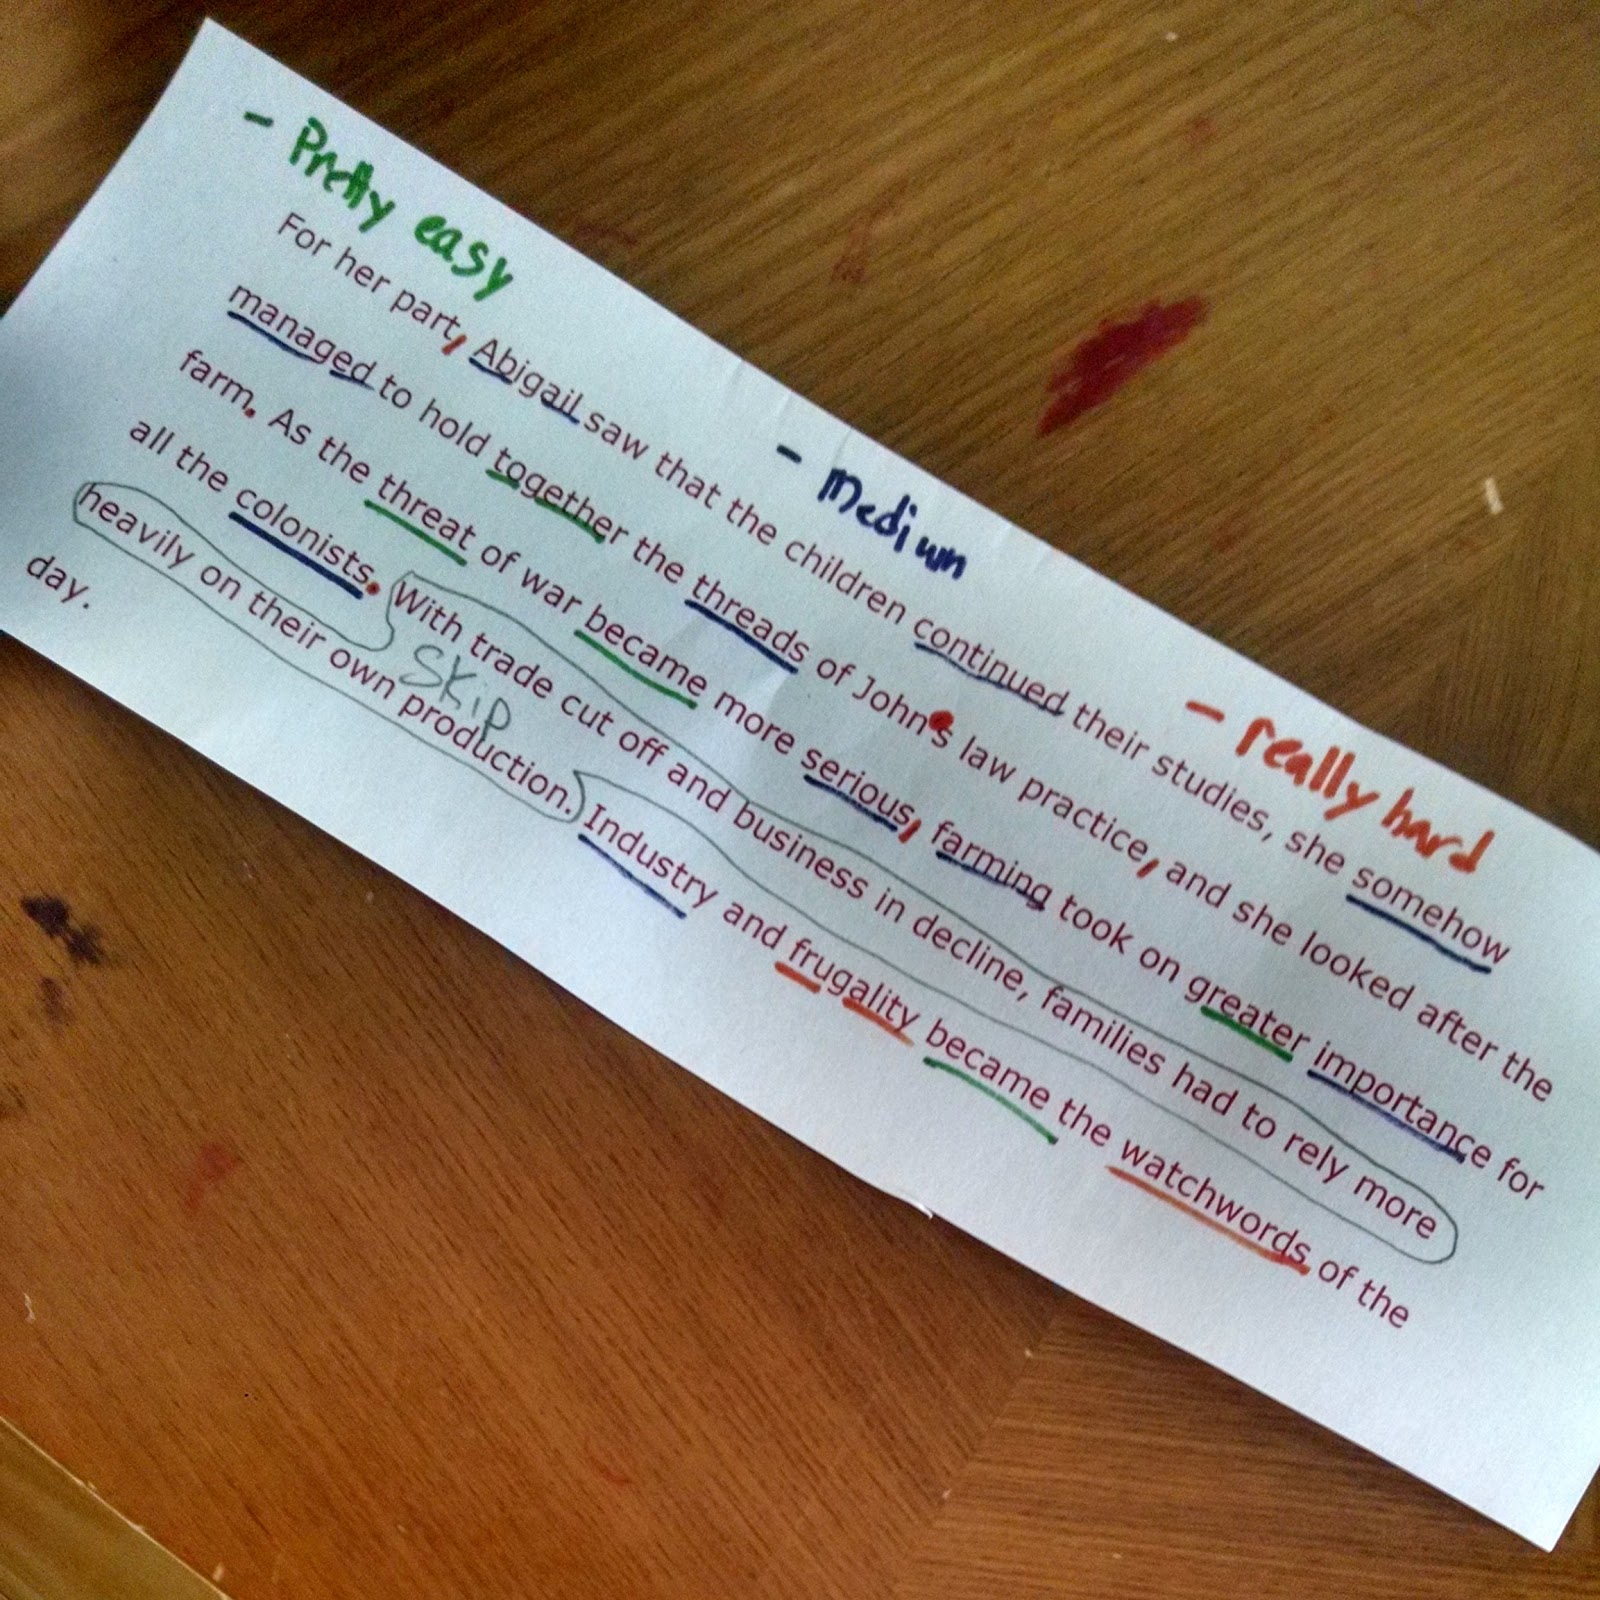 - Pretty easy
- Medium
- really hard
For her part, Abigail saw that the children continued their studies, she somehow
managed to hold together the threads of John's law practice, and she looked after the
farm. As the threat of war became more serious, farming took on greater importance for
all the colonists. With trade cut off and business in decline, families had to rely more
Skip
heavily on their own production. Industry and frugality became the watchwords of the
day.